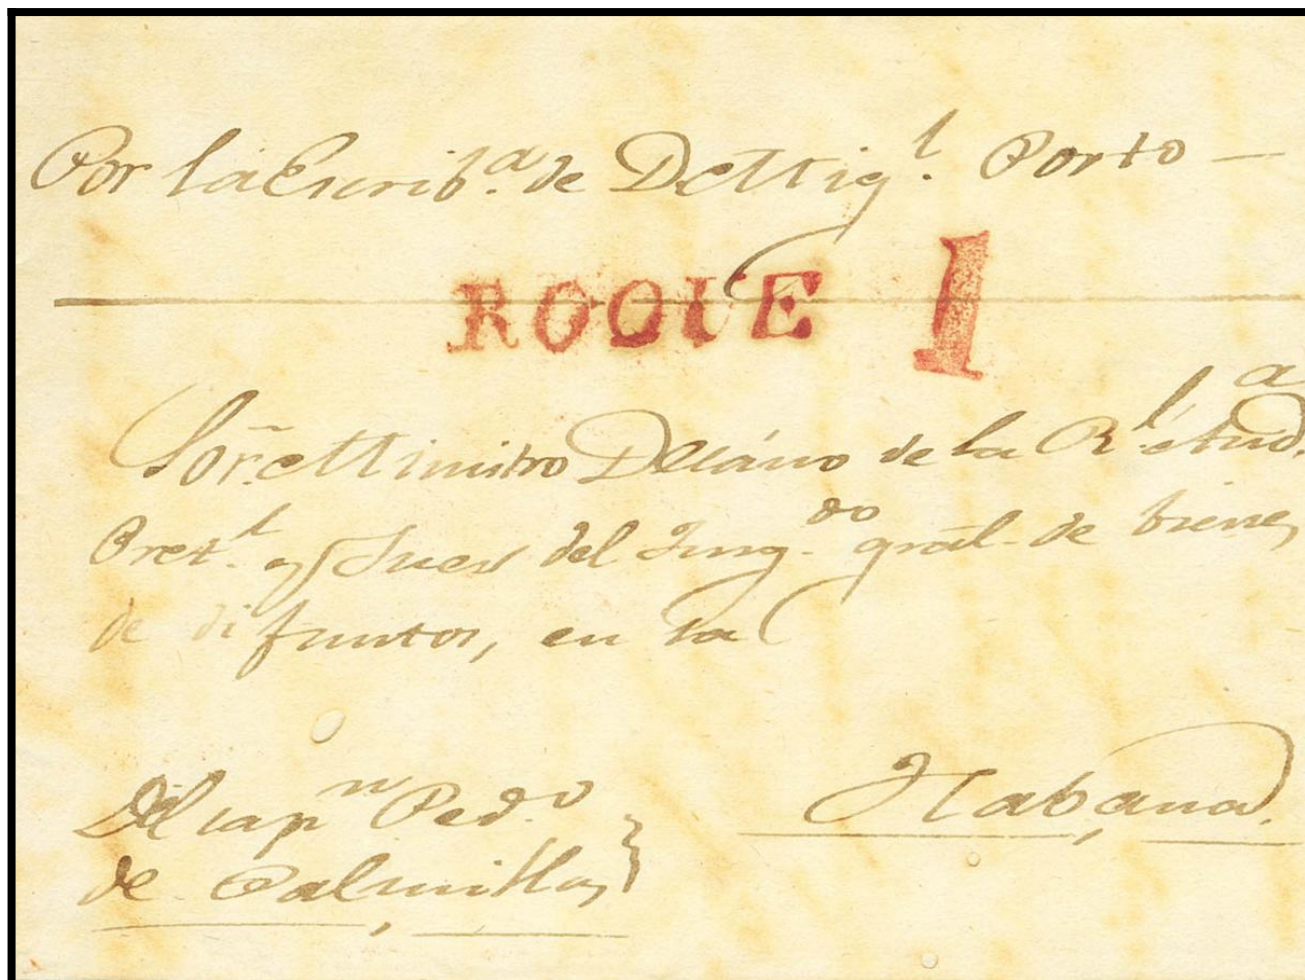 Por la Escrib.ª de D.n Mig.l Porto —
ROQUE 1
Sor. Ministro Decáno de la R.l Aud.a
Pret.l y Juez del Juzg.do gral. de bienes
de difuntos, en la
Habana.
Del cap.n Ped.o
de Palmillas